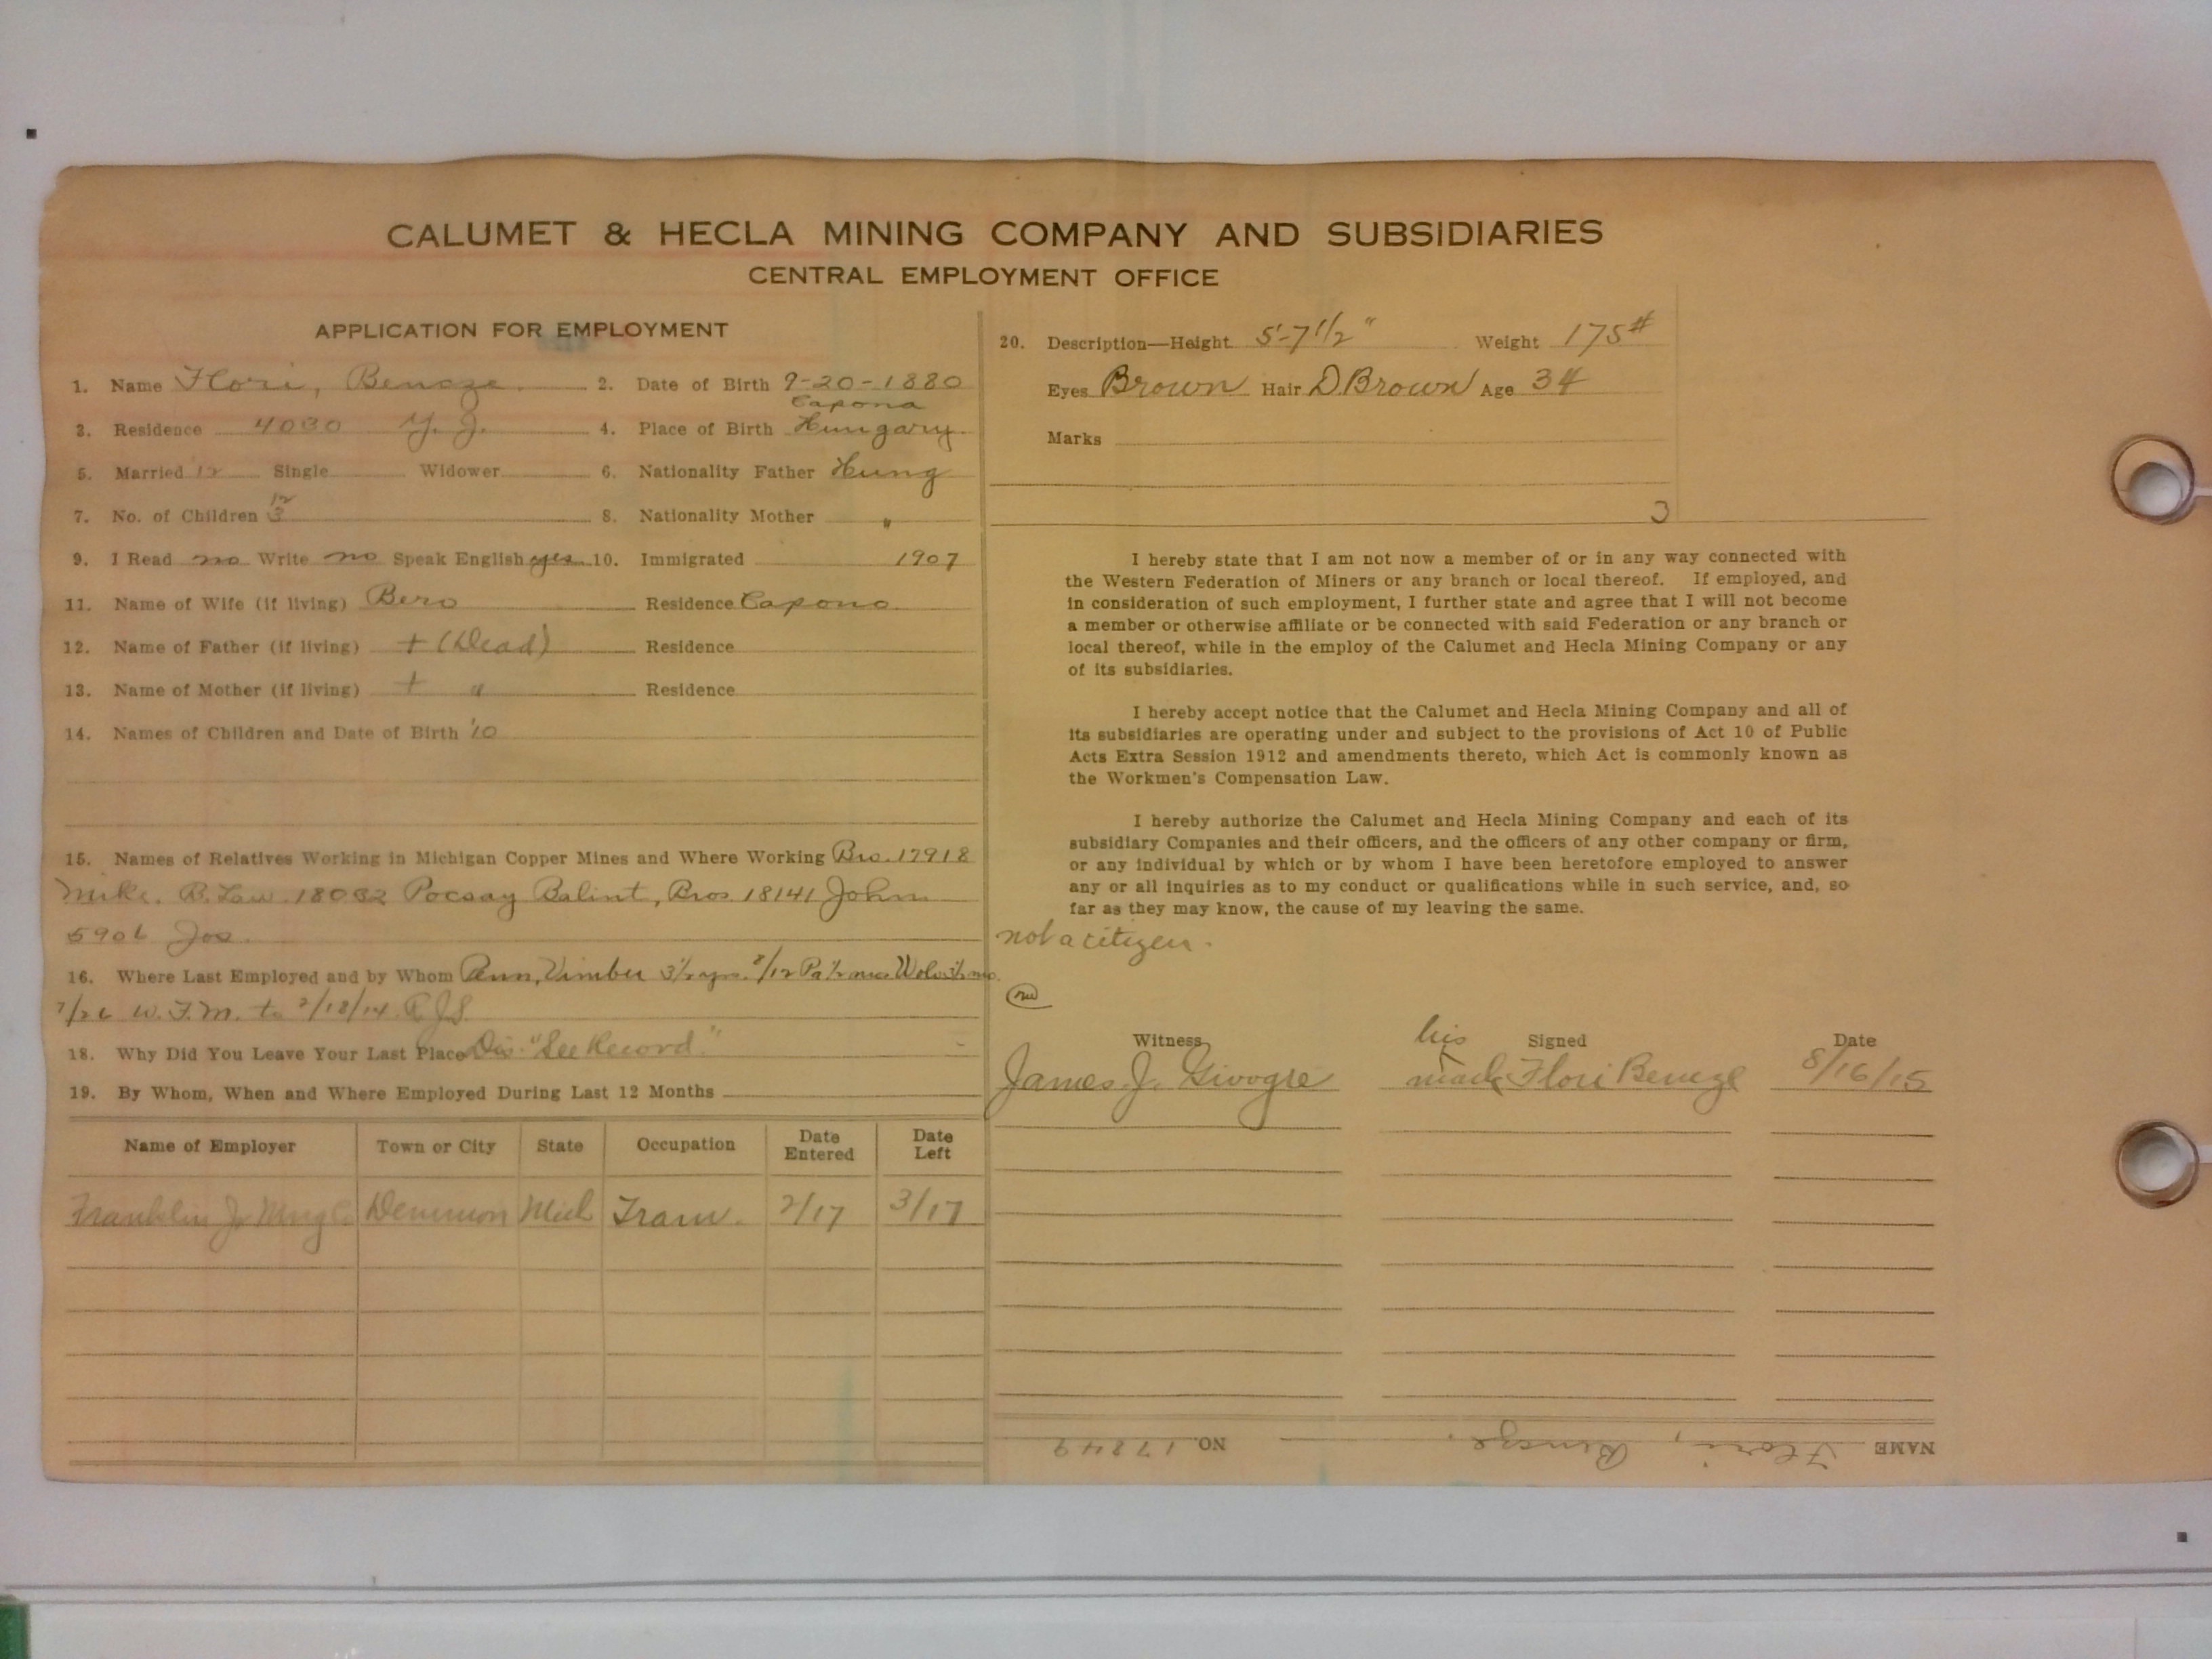 CALUMET & HECLA MINING COMPANY AND SUBSIDIARIES
CENTRAL EMPLOYMENT OFFICE
APPLICATION FOR EMPLOYMENT
1. Name Flori, Bencze. 2. Date of Birth 9-20-1880
Capona
3. Residence 4030 Y. J. 4. Place of Birth Hungary.
5. Married 12 Single Widower 6. Nationality Father Hung
12
7. No. of Children 3 8. Nationality Mother "
9. I Read no Write no Speak English yes 10. Immigrated 1907
11. Name of Wife (if living) Bero Residence Capono
12. Name of Father (if living) + (Dead) Residence
13. Name of Mother (if living) + " Residence
14. Names of Children and Date of Birth '10
15. Names of Relatives Working in Michigan Copper Mines and Where Working Bro. 17918
Mike. B. Law. 18032 Pocsay Balint, Bros. 18141 John
5906 Jos.
16. Where Last Employed and by Whom 3½ yrs. 8/12
7/26 W.F.M. to 2/18/14.
18. Why Did You Leave Your Last Place Dis. "See Record."
19. By Whom, When and Where Employed During Last 12 Months
Name of Employer Town or City State Occupation Date Entered Date Left
Franklin Jr Mng Co Demmon Mich Tram. 2/17 3/17
20. Description—Height 5'-7 1/2" Weight 175#
Eyes Brown Hair D.Brown Age 34
Marks
3
I hereby state that I am not now a member of or in any way connected with
the Western Federation of Miners or any branch or local thereof. If employed, and
in consideration of such employment, I further state and agree that I will not become
a member or otherwise affiliate or be connected with said Federation or any branch or
local thereof, while in the employ of the Calumet and Hecla Mining Company or any
of its subsidiaries.
I hereby accept notice that the Calumet and Hecla Mining Company and all of
its subsidiaries are operating under and subject to the provisions of Act 10 of Public
Acts Extra Session 1912 and amendments thereto, which Act is commonly known as
the Workmen's Compensation Law.
I hereby authorize the Calumet and Hecla Mining Company and each of its
subsidiary Companies and their officers, and the officers of any other company or firm,
or any individual by which or by whom I have been heretofore employed to answer
any or all inquiries as to my conduct or qualifications while in such service, and, so
far as they may know, the cause of my leaving the same.
not a citizen.
Witness his Signed Date
James J. mark Flori Bencze 8/16/15
NAME Flori, Bencze. NO. 17849